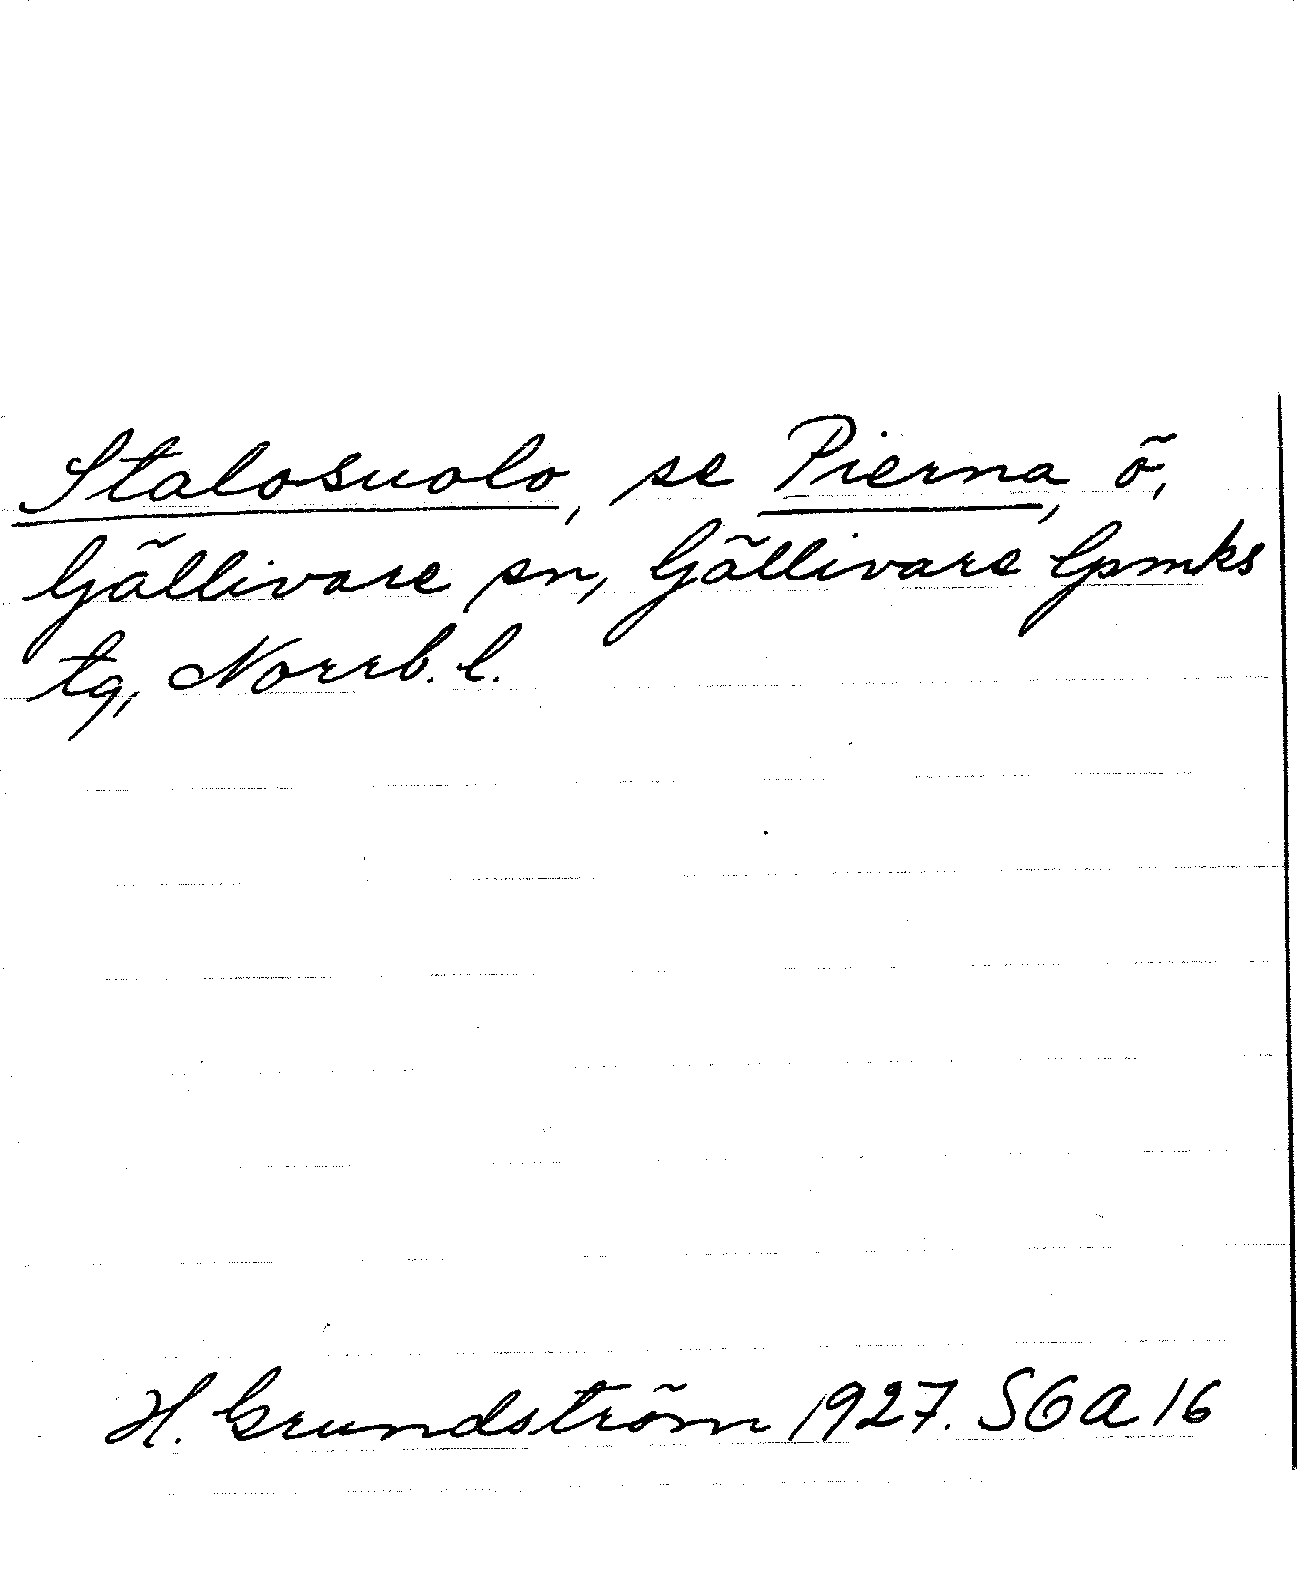 Stalosuolo, se Pierna, ö,
Gällivare sn, Gällivare lpmks
tg, Norrb. l.
H. Grundström 1927. SGA 16